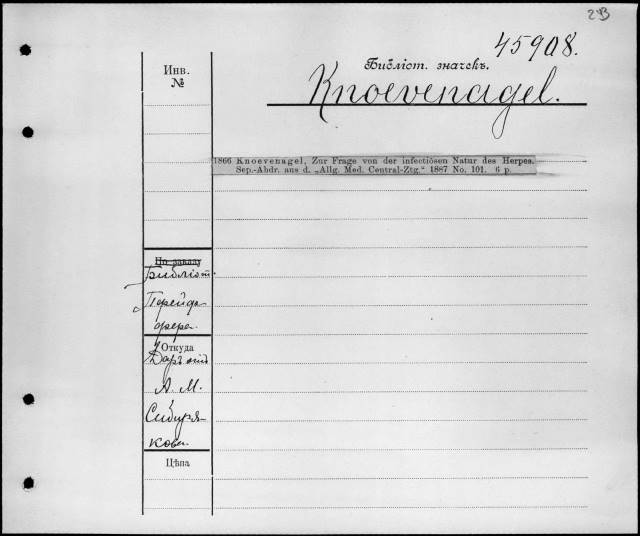 45908.
Библіот. значекъ.
Knoevenagel.
Инв.
№
1866 Knoevenagel, Zur Frage von der infectiösen Natur des Herpes.
Sep.-Abdr. aus d. „Allg. Med. Central-Ztg.“ 1887 No. 101. 6 p.
По заказу
Библіот.
Откуда
Даръ отъ
А. М.
Сибиря-
кова.
Цѣна